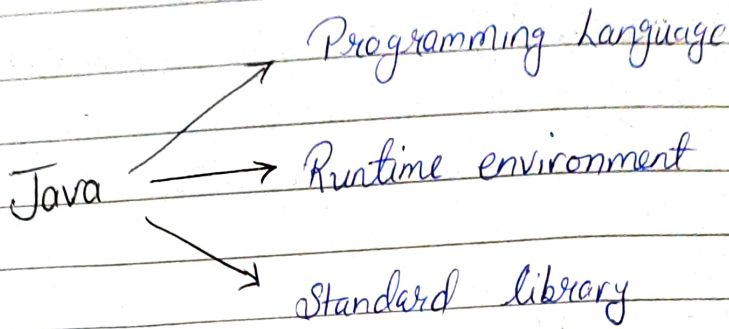 Programming Language
Java
Runtime environment
Standard library